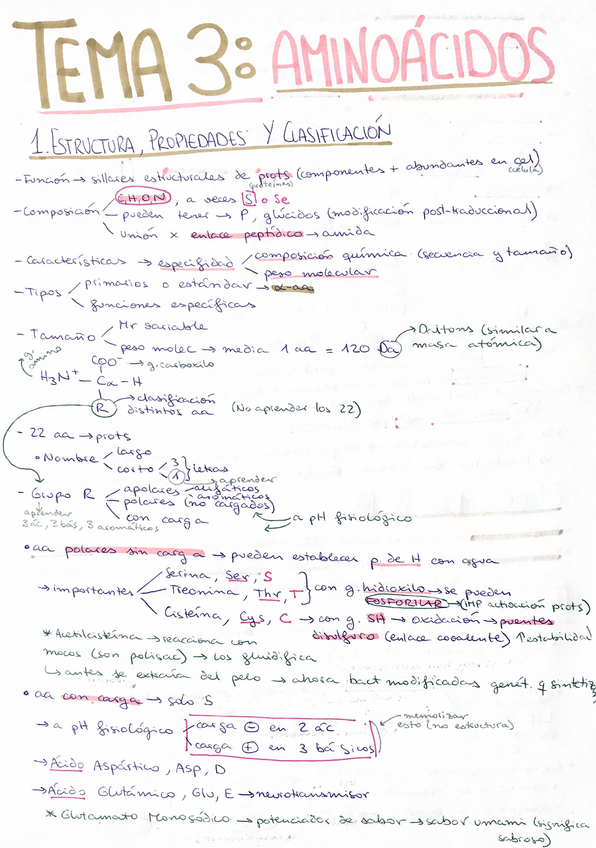 TEMA 3: AMINOÁCIDOS
1. ESTRUCTURA, PROPIEDADES Y CLASIFICACIÓN
- Función → sillares estructurales de prots (componentes + abundantes en cel)
(proteínas) (célula)
C,H,O,N, a veces S o Se
- Composición pueden tener → P, glúcidos (modificación post-traduccional)
unión x enlace peptídico → amida
- Características → especifidad composición química (secuencia y tamaño)
peso molecular
- Tipos primarios o estándar → α-aa
funciones específicas
- Tamaño Mr variable
peso molec → media 1 aa = 120 Da → Daltons (similar a masa atómica)
g. amino COO⁻ → g. carboxilo
H₃N⁺ — Cα — H
R → clasificación distintos aa (No aprender los 22)
- 22 aa → prots
• Nombre largo
corto 3 1 } letras
aprender
- Grupo R apolares alifáticos aromáticos
polares (no cargados)
con carga
← a pH fisiológico
aprender 3 ác, 3 bás, 3 aromáticos
• aa polares sin carga → pueden establecer p. de H con agua
→ importantes Serina, Ser, S
Treonina, Thr, T } con g. hidroxilo → se pueden FOSFORILAR → (IMP activación prots)
Cisteína, Cys, C → con g. SH → oxidación → puentes disulfuro (enlace covalente) ↑estabilidad
* Acetilcisteína → reacciona con
mocos (son polisac) → los fluidifica
↳ antes se extraía del pelo → ahora bact modificadas genét. q sintetiz
• aa con carga → sólo 5
→ a pH fisiológico carga ⊖ en 2 ác
carga ⊕ en 3 básicos
← memorizar esto (no estructura)
→ Ácido Aspártico, Asp, D
→ Ácido Glutámico, Glu, E → neurotransmisor
* Glutamato Monosódico → potenciador de sabor → sabor umami (significa sabroso)